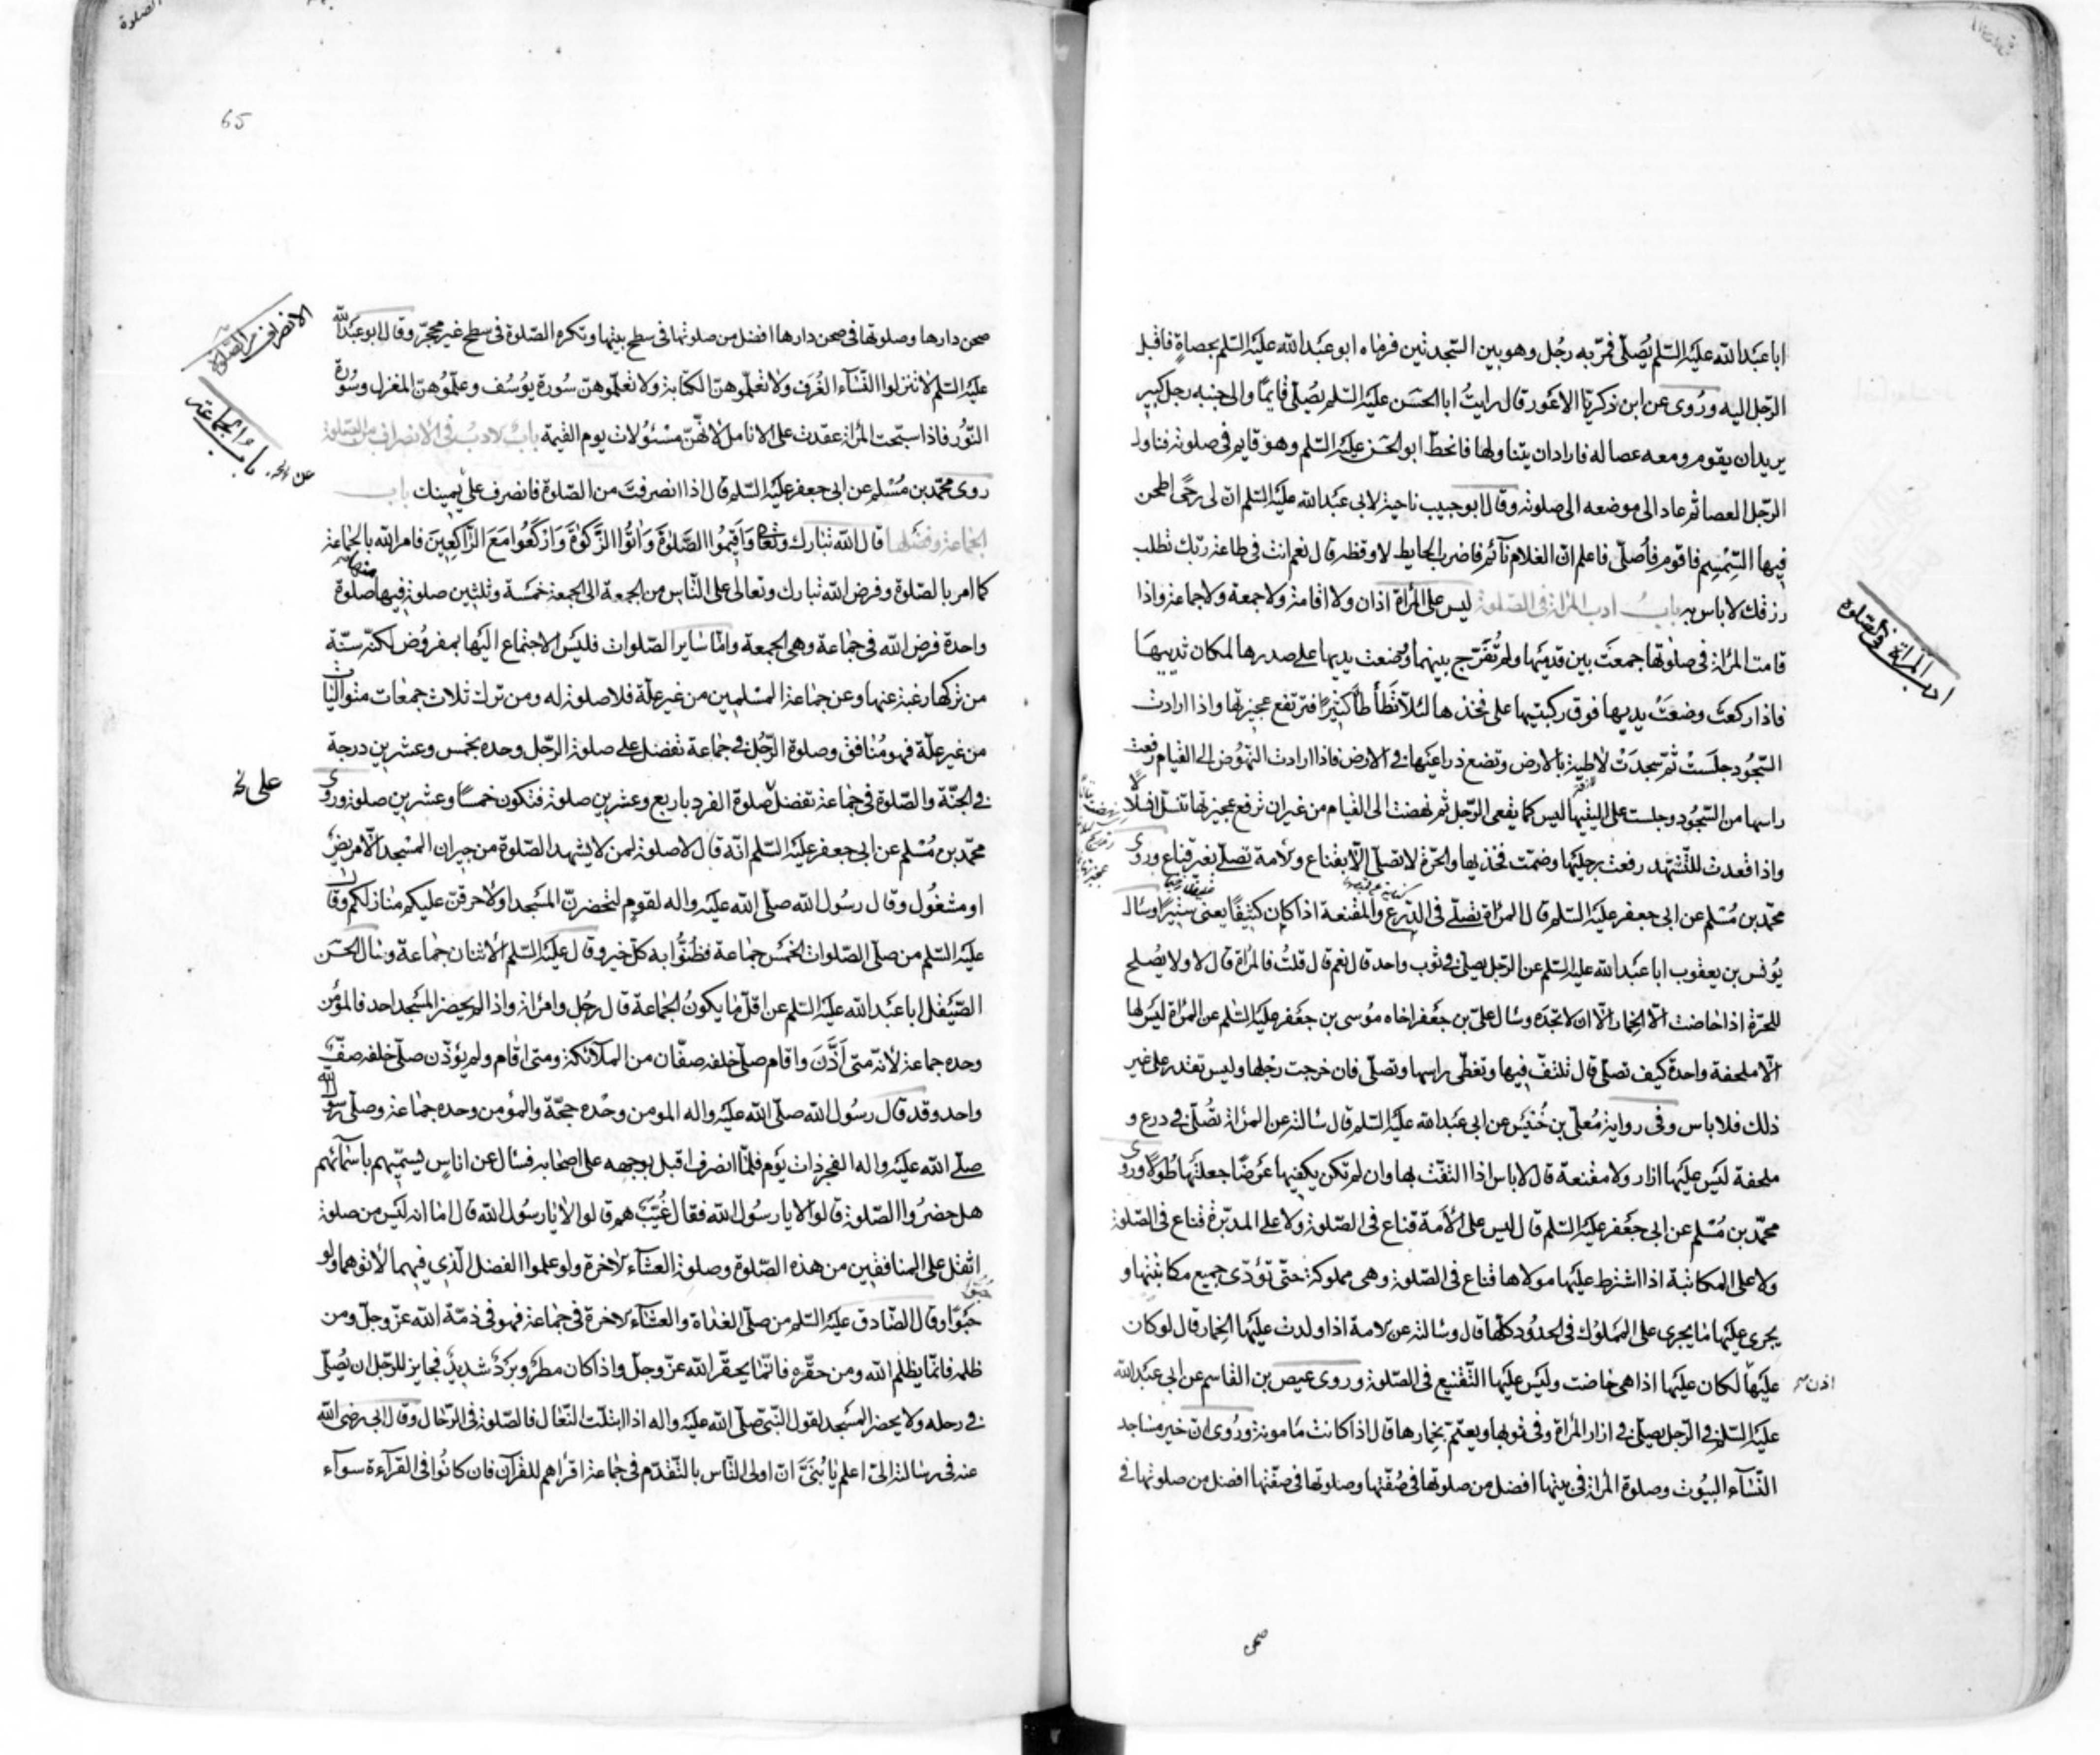 ابا عبد الله عليه السلم يصلى فمر به رجل وهو بين السجدتين فرماه ابو عبد الله عليه السلم بحصاة فاقبل
الرجل اليه وروى عن ابن ذكريا الاعور قال رايت ابا الحسن عليه السلم يصلى قايما والى جنبه رجل كبير
يريد ان يقوم ومعه عصا له فاراد ان يتناولها فانحط ابو الحسن عليه السلم وهو قايم فى صلوته فناول
الرجل العصا ثم عاد الى موضعه الى صلوته وقال ابو حبيب ناجية لابى عبد الله عليه السلم ان لى رحى اطحن
فيها السمسم فاقوم فاصلى فاعلم ان الغلام نآئم فاضرب الحايط لاوقظه قال نعم انت فى طاعة ربك تطلب
رزقك لا باس به باب ادب المراة فى الصلوة ليس على المراة اذان ولا اقامة ولا جمعة ولا جماعة واذا
قامت المراة فى صلوتها جمعت بين قدميها ولم تفرج بينهما ووضعت يديها على صدرها لمكان ثدييها
فاذا ركعت وضعت يديها فوق ركبتيها على فخذها لئلا تطأطأ كثيرا فترتفع عجيزتها واذا ارادت
السجود جلست ثم سجدت لاطية بالارض وتضع ذراعيها فى الارض فاذا ارادت النهوض الى القيام رفعت
راسها من السجود وجلست على اليتيها ليس كما يقعى الرجل ثم نهضت الى القيام من غير ان ترفع عجيزتها تنسل انسلالا
واذا قعدت للتشهد رفعت رجليها وضمت فخذيها والحرة لا تصلى الا بقناع والامة تصلى بغير قناع وروى
محمد بن مسلم عن ابى جعفر عليه السلم قال المراة تصلى فى الدرع والمقنعة اذا كان كثيفا يعنى ستيرا وسال
يونس بن يعقوب ابا عبد الله عليه السلم عن الرجل يصلى فى ثوب واحد قال نعم قال قلت فالمراة قال لا ولا يصلح
للحرة اذا حاضت الا الخمار الا ان لا تجده وسال على بن جعفر اخاه موسى بن جعفر عليه السلم عن المراة ليس لها
الا ملحفة واحدة كيف تصلى قال تلتف فيها وتغطى راسها وتصلى فان خرجت رجلها وليس تقدر على غير
ذلك فلا باس وفى رواية معلى بن خنيس عن ابى عبد الله عليه السلم قال سالته عن المراة تصلى فى درع و
ملحفة ليس عليها ازار ولا مقنعة قال لا باس اذا التفت بها وان لم تكن يكفيها عرضا جعلتها طولا وروى
محمد بن مسلم عن ابى جعفر عليه السلم قال ليس على الامة قناع فى الصلوة ولا على المدبرة قناع فى الصلوة
ولا على المكاتبة اذا اشترط عليها مولاها قناع فى الصلوة وهى مملوكة حتى تؤدى جميع مكاتبتها و
يجرى عليها ما يجرى على المملوك فى الحدود كلها قال وسالته عن الامة اذا ولدت عليها الخمار قال لو كان
عليها لكان عليها اذا هى حاضت وليس عليها التقنيع فى الصلوة وروى عيص بن القاسم عن ابى عبد الله
عليه السلم فى الرجل يصلى فى ازار المراة وفى ثوبها ويعتم بخمارها قال اذا كانت مامونة وروى ان خير مساجد
النساء البيوت وصلوة المراة فى بيتها افضل من صلوتها فى صفتها وصلوتها فى صفتها افضل من صلوتها فى
صحن
ادب المراة فى الصلوة
65
صحن دارها وصلوتها فى صحن دارها افضل من صلوتها فى سطح بيتها وتكره الصلوة فى سطح غير محجر وقال ابو عبد الله
عليه السلم لا تنزلوا النساء الغرف ولا تعلموهن الكتابة ولا تعلموهن سورة يوسف وعلموهن المغزل وسورة
النور فاذا سبحت المراة عقدت على الانامل لانهن مسئولات يوم القيمة باب الادب فى الانصراف من الصلوة
روى محمد بن مسلم عن ابى جعفر عليه السلم قال اذا انصرفت من الصلوة فانصرف على يمينك باب
الجماعة وفضلها قال الله تبارك وتعالى وَاَقيمُوا الصَّلوةَ وَاٰتُوا الزَّكوٰةَ وَارْكَعُوا مَعَ الرَّاكِعِينَ فامر الله بالجماعة
كما امر بالصلوة وفرض الله تبارك وتعالى على الناس من الجمعة الى الجمعة خمسة وثلثين صلوة فيها صلوة
واحدة فرض الله فى جماعة وهى الجمعة واما ساير الصلوات فليس الاجتماع اليها بمفروض لكنه سنة
من تركها رغبة عنها وعن جماعة المسلمين من غير علة فلا صلوة له ومن ترك ثلاث جمعات متواليات
من غير علة فهو منافق وصلوة الرجل فى جماعة تفضل على صلوة الرجل وحده بخمس وعشرين درجة
فى الجنة والصلوة فى جماعة تفضل صلوة الفرد باربع وعشرين صلوة فتكون خمسا وعشرين صلوة وروى
محمد بن مسلم عن ابى جعفر عليه السلم انه قال لا صلوة لمن لا يشهد الصلوة من جيران المسجد الا مريض
او مشغول وقال رسول الله صلى الله عليه واله لقوم لتحضرن المسجد او لاحرقن عليكم منازلكم وقال
عليه السلم من صلى الصلوات الخمس جماعة فظنوا به كل خير وقال عليه السلم الاثنان جماعة وسال الحسن
الصيقل ابا عبد الله عليه السلم عن اقل ما يكون الجماعة قال رجل وامراة واذا لم يحضر المسجد احد فالمؤمن
وحده جماعة لانه متى اذن واقام صلى خلفه صفان من الملآئكة ومتى اقام ولم يؤذن صلى خلفه صف
واحد وقد قال رسول الله صلى الله عليه واله المومن وحده حجة والمؤمن وحده جماعة وصلى رسول الله
صلى الله عليه واله الفجر ذات يوم فلما انصرف اقبل بوجهه على اصحابه فسال عن اناس يسميهم باسمآئهم
هل حضروا الصلوة قالوا لا يا رسول الله فقال غيب هم قالوا لا يا رسول الله قال اما انه ليس من صلوة
اثقل على المنافقين من هذه الصلوة وصلوة العشآء الاخرة ولو علموا الفضل الذى فيهما لاتوهما ولو
حبوا وقال الصادق عليه السلم من صلى الغداة والعشآء الاخرة فى جماعة فهو فى ذمة الله عز وجل ومن
ظلمه فانما يظلم الله ومن حقره فانما يحقر الله عز وجل واذا كان مطر وبرد شديد فجايز للرجل ان يصلى
فى رحله ولا يحضر المسجد لقول النبى صلى الله عليه واله اذا ابتلت النعال فالصلوة فى الرحال وقال ابى رضى الله
عنه فى رسالته الى اعلم يا بنى ان اولى الناس بالتقدم فى جماعة اقراهم للقرآن فان كانوا فى القرآءة سوآء
الانصراف من الصلوة
باب الجماعة
على نخ